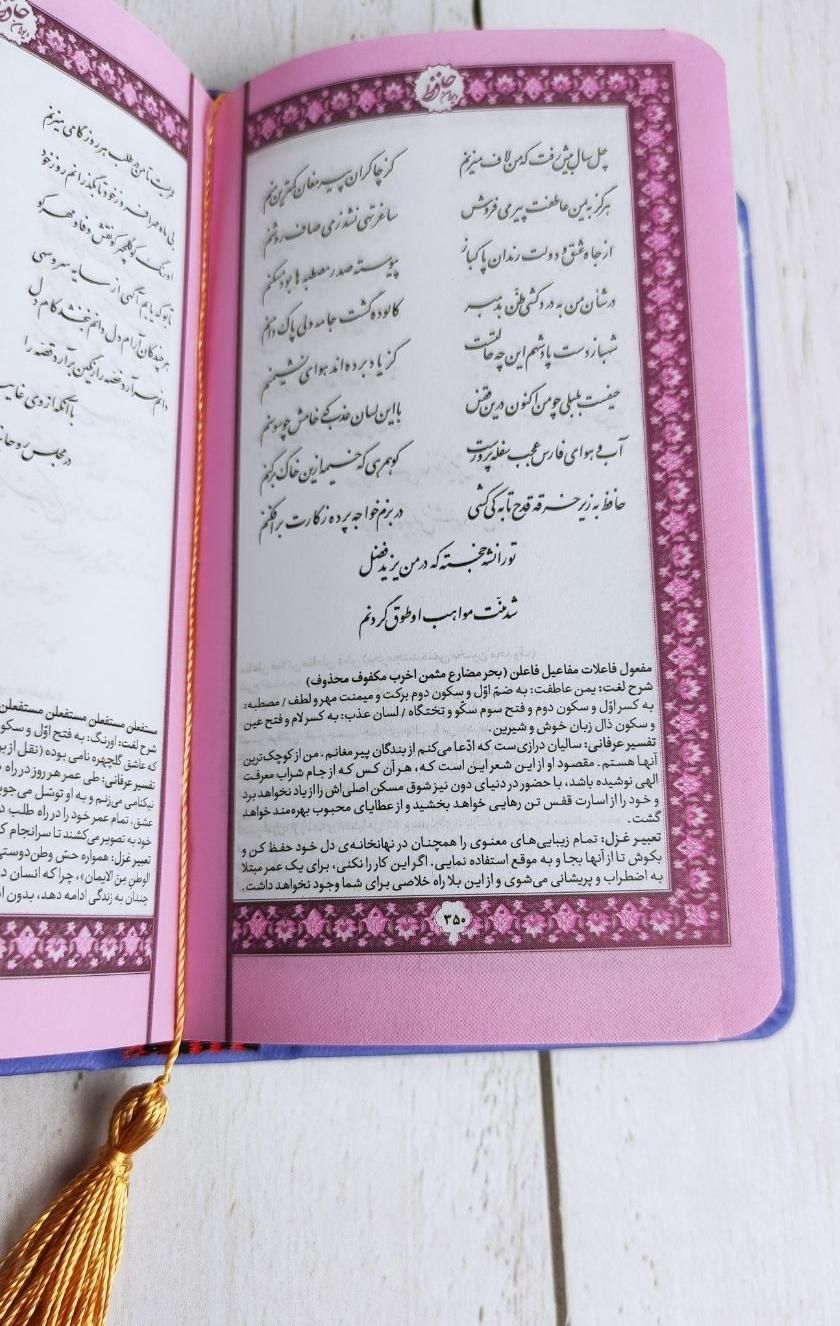 دیوان حافظ
چل سال بیش رفت که من لاف میزنم
کز چاکران پیر مغان کمترین منم
هرگز به یمن عاطفت پیر می فروش
ساغر تهی نشد ز می صاف روشنم
از جاه عشق و دولت رندان پاکباز
پیوسته صدر مصطبه ها بود مسکنم
در شأن من به درد کشی ظن بد مبر
کالوده گشت جامه ولی پاک دامنم
شهباز دست پادشهم این چه حالتست
کز یاد برده اند هوای نشیمنم
حیفست بلبلی چو من اکنون درین قفس
با این لسان عذب که خامش چو سوسنم
آب و هوای فارس عجب سفله پرورست
کو همرهی که خیمه ازین خاک برکنم
حافظ به زیر خرقه قدح تا به کی کشی
در بزم خواجه پرده ز کارت برافکنم
تورانشه خجسته که در من یزید فضل
شد منّت مواهب او طوق گردنم
مفعول فاعلات مفاعیل فاعلن (بحر مضارع مثمن اخرب مکفوف محذوف)
شرح لغت: یمن عاطفت: به ضمّ اوّل و سکون دوم برکت و میمنت مهر و لطف / مصطبه:
به کسر اوّل و سکون دوم و فتح سوم سکّو و تختگاه / لسان عذب: به کسر لام و فتح عین
و سکون ذال زبان خوش و شیرین.
تفسیر عرفانی: سالیان درازی‌ست که ادّعا می‌کنم از بندگان پیر مغانم. من از کوچک‌ترین
آنها هستم. مقصود او از این شعر این است که، هر آن کس که از جام شراب معرفت
الهی نوشیده باشد، با حضور در دنیای دون نیز شوق مسکن اصلی‌اش را از یاد نخواهد برد
و خود را از اسارت قفس تن رهایی خواهد بخشید و از عطایای محبوب بهره‌مند خواهد
گشت.
تعبیر غزل: تمام زیبایی‌های معنوی را همچنان در نهانخانه‌ی دل خود حفظ کن و
بکوش تا از آنها بجا و به موقع استفاده نمایی. اگر این کار را نکنی، برای یک عمر مبتلا
به اضطراب و پریشانی می‌شوی و از این بلا راه خلاصی برای شما وجود نخواهد داشت.
۳۵۰
در طلب هر روز گامی میزنم
بی ماه مهرافروز خود تا بگذرانم روز خود
اورنگ کو گلچهر کو نقش وفا و مهر کو
تا بو که یابم آگهی از سایه سرو سهی
هر چند کان آرام دل دانم نبخشد کام دل
دانم سر آرد غصه را رنگین برآرد قصه را
با آنکه از وی غایب
در مجلس روحانی
مستفعلن مستفعلن مستفعلن مستفعلن
شرح لغت: اورنگ: به فتح اوّل و سکون
که عاشق گلچهره نامی بوده (نقل از
تفسیر عرفانی: طی عمر هر روز در راه
نیکنامی می‌زنم و به او توسّل می‌جویم
عشق، تمام عمر خود را در راه طلب
خود به تصویر می‌کشند تا سرانجام
تعبیر غزل: همواره حسّ وطن‌دوستی
الوطن من الایمان»، چرا که انسان
چندان به زندگی ادامه دهد، بدون